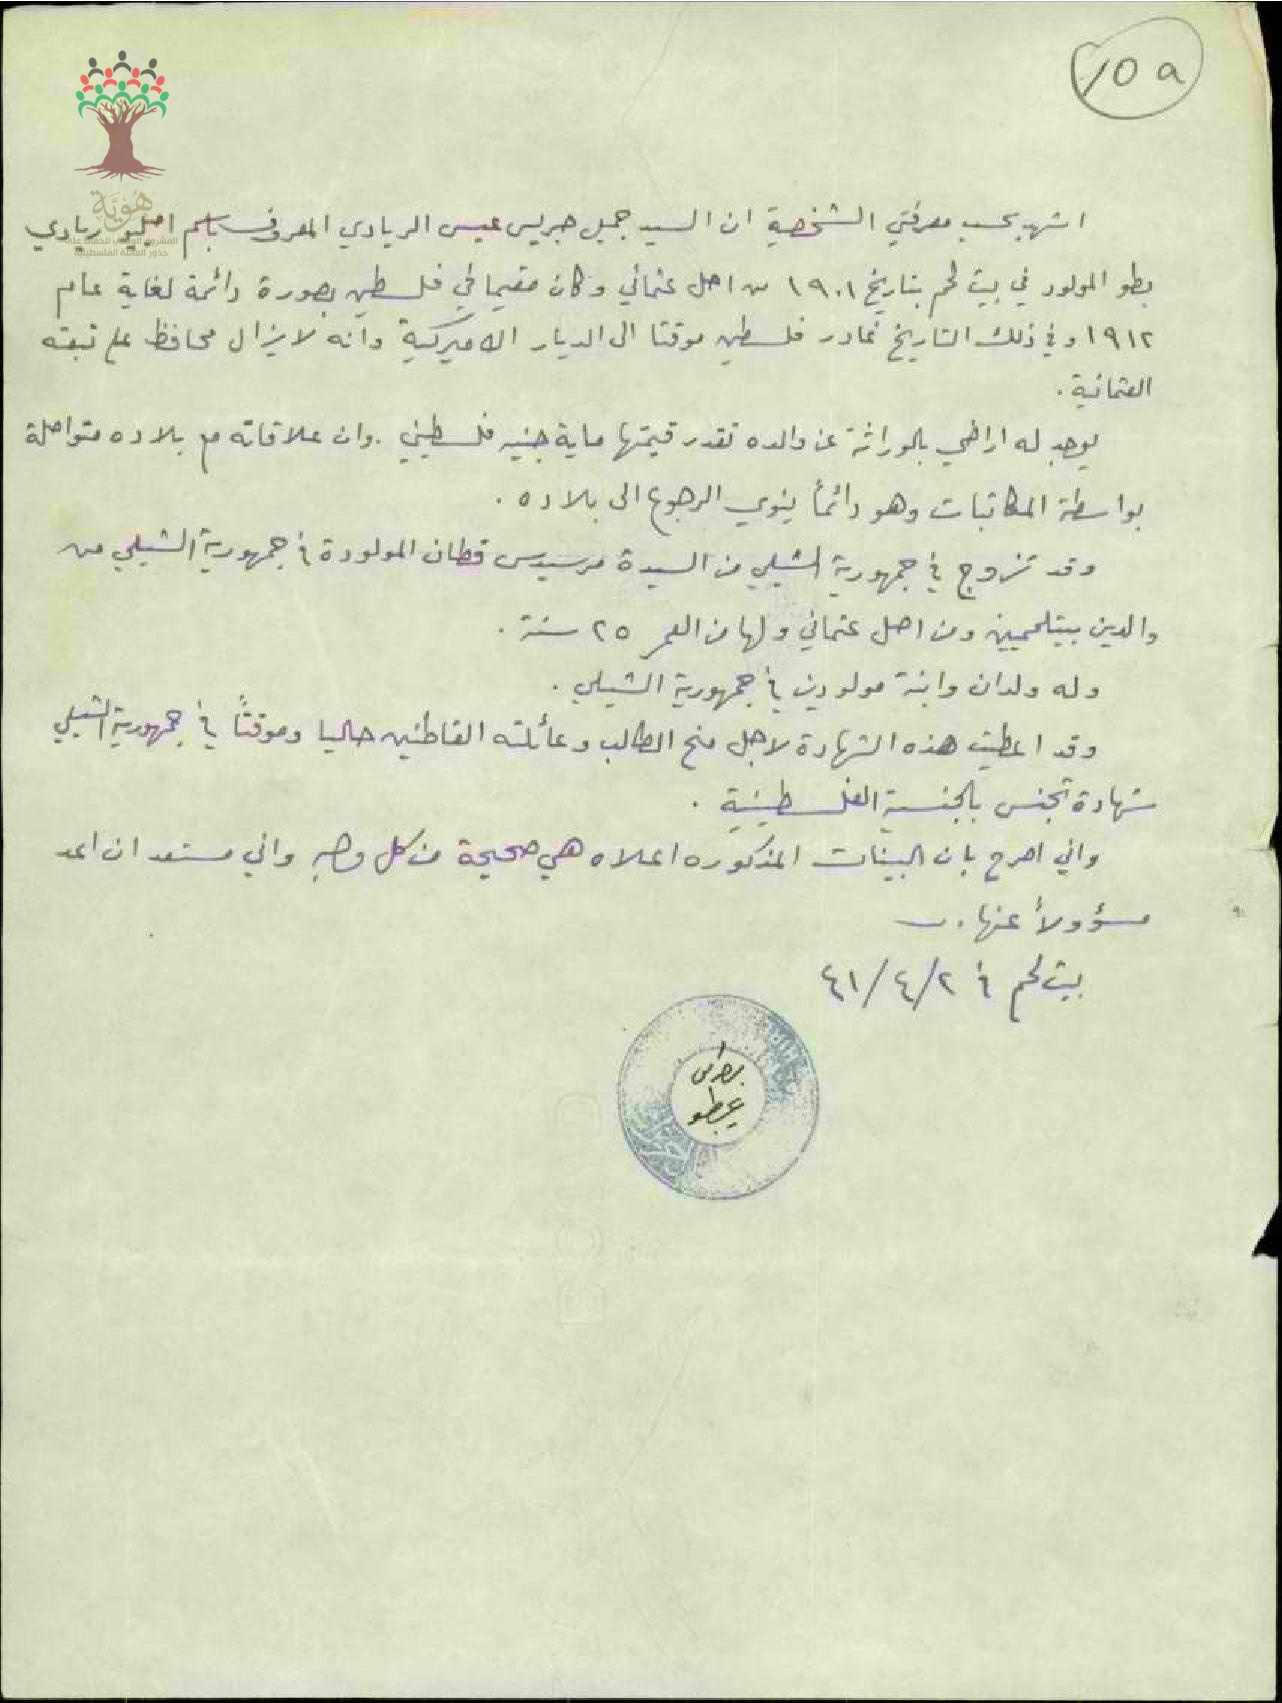 10 a
هُوِيَّة
المشروع الوطني للحفاظ على
جذور العائلة الفلسطينية
اشهد بحسب معرفتي الشخصية ان السيد جميل جريس عيسى الريادي المعروف باسم اميليو ريادي
بطو المولود في بيت لحم بتاريخ ١٩٠١ من اصل عثماني وكان مقيما في فلسطين بصورة دائمة لغاية عام
١٩١٢ وفي ذلك التاريخ غادر فلسطين موقتا الى الديار الاميركية وانه لا يزال محافظ على تبعته
العثمانية .
يوجد له اراضي بالوراثة عن والده تقدر قيمتها ماية جنيه فلسطيني . وان علاقاته مع بلاده متواصلة
بواسطة المكاتبات وهو دائماً ينوي الرجوع الى بلاده .
وقد تزوج في جمهورية الشيلي من السيدة مرسيدس قطان المولودة في جمهورية الشيلي من
والدين بيتلحميين ومن اصل عثماني ولها من العمر ٢٥ سنة .
وله ولدان وابنة مولودين في جمهورية الشيلي .
وقد اعطيت هذه الشهادة لاجل منح الطالب وعائلته القاطنين حاليا وموقتاً في جمهورية الشيلي
شهادة تجنس بالجنسية الفلسطينية .
واني اصرح بان البينات المذكوره اعلاه هي صحيحة من كل وجه واني مستعد ان اعد
مسؤولاً عنها .
بيت لحم في ٢/٤/٤١